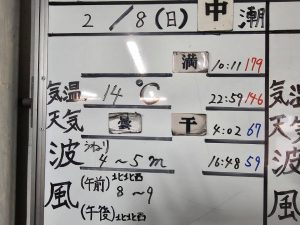 2/8(日) 中潮
満 10:11 179
気温 14℃ 22:59 146
天気 曇 干 4:02 67
波 うねり 4～5m 16:48 59
風 (午前) 北北西 8～9
(午後) 北北西